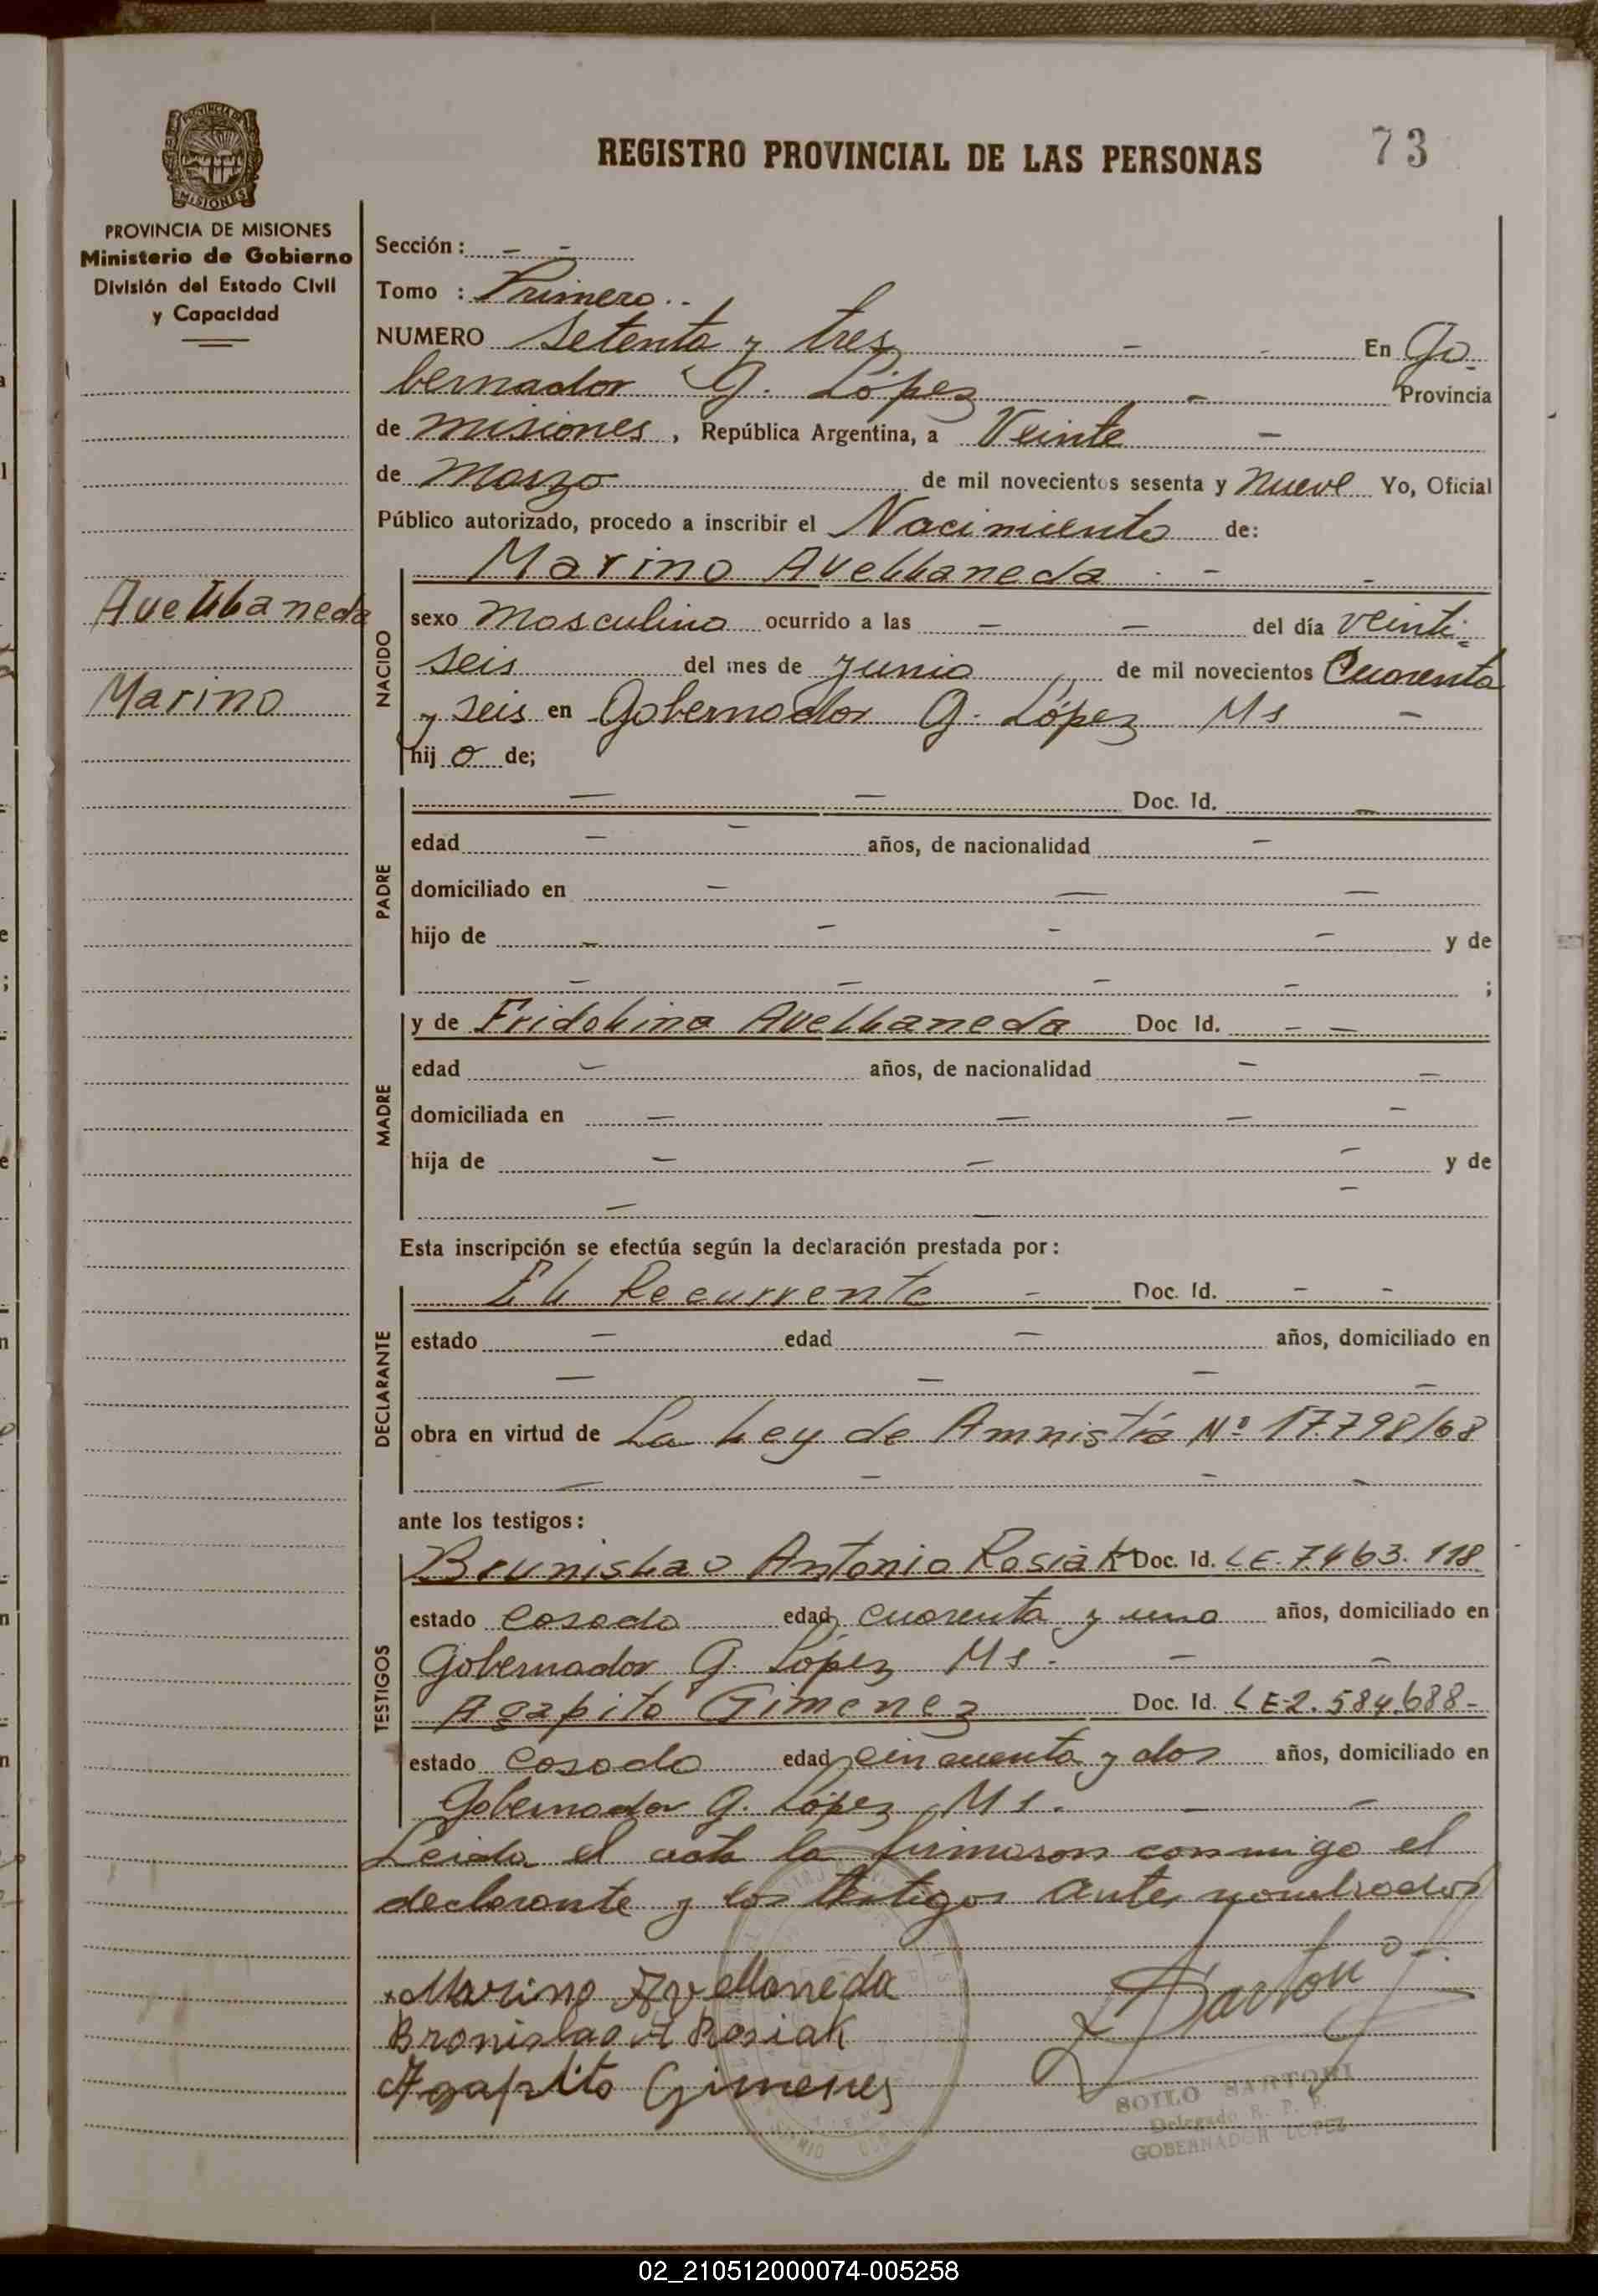 REGISTRO PROVINCIAL DE LAS PERSONAS 73
PROVINCIA DE MISIONES
MISIONES
PROVINCIA DE MISIONES
Ministerio de Gobierno
División del Estado Civil
y Capacidad
Avellaneda
Marino
Sección : - -
Tomo : Primero..
NUMERO Setenta y tres - - En Go-
bernador G. López - Provincia
de Misiones, República Argentina, a Veinte -
de Marzo de mil novecientos sesenta y nueve Yo, Oficial
Público autorizado, procedo a inscribir el Nacimiento de:
NACIDO
Marino Avellaneda - - -
sexo Masculino ocurrido a las - - del día veinti-
seis del mes de junio de mil novecientos Cuarenta
y seis en Gobernador G. López Ms -
hij o de;
PADRE
- - Doc. Id. -
edad - - años, de nacionalidad -
domiciliado en - - -
hijo de - - - - y de
- - - - ;
MADRE
y de Fridolina Avellaneda Doc Id. - -
edad - años, de nacionalidad - -
domiciliada en - - - -
hija de - - - y de
- - -
Esta inscripción se efectúa según la declaración prestada por :
DECLARANTE
El Recurrente - Doc. Id. - -
estado - edad - años, domiciliado en
- - - -
obra en virtud de La Ley de Amnistía Nº 17.798/68
- - - -
ante los testigos :
TESTIGOS
Brunislao Antonio Rosiak Doc. Id. LE. 7.463.118
estado casado edad cuarenta y uno años, domiciliado en
Gobernador G. López Ms. - -
Agapito Gimenez Doc. Id. LE-2.584.688-
estado casado edad cincuenta y dos años, domiciliado en
Gobernador G. López, Ms. - -
Leida el acta la firmaron conmigo el
declarante y los testigos ante nombrados
x Marino Avellaneda
Bronislao A Rosiak
Agapito Gimenes
Sartori
SOILO SARTORI
Delegado R. P. P.
GOBERNADOR LOPEZ
02_210512000074-005258